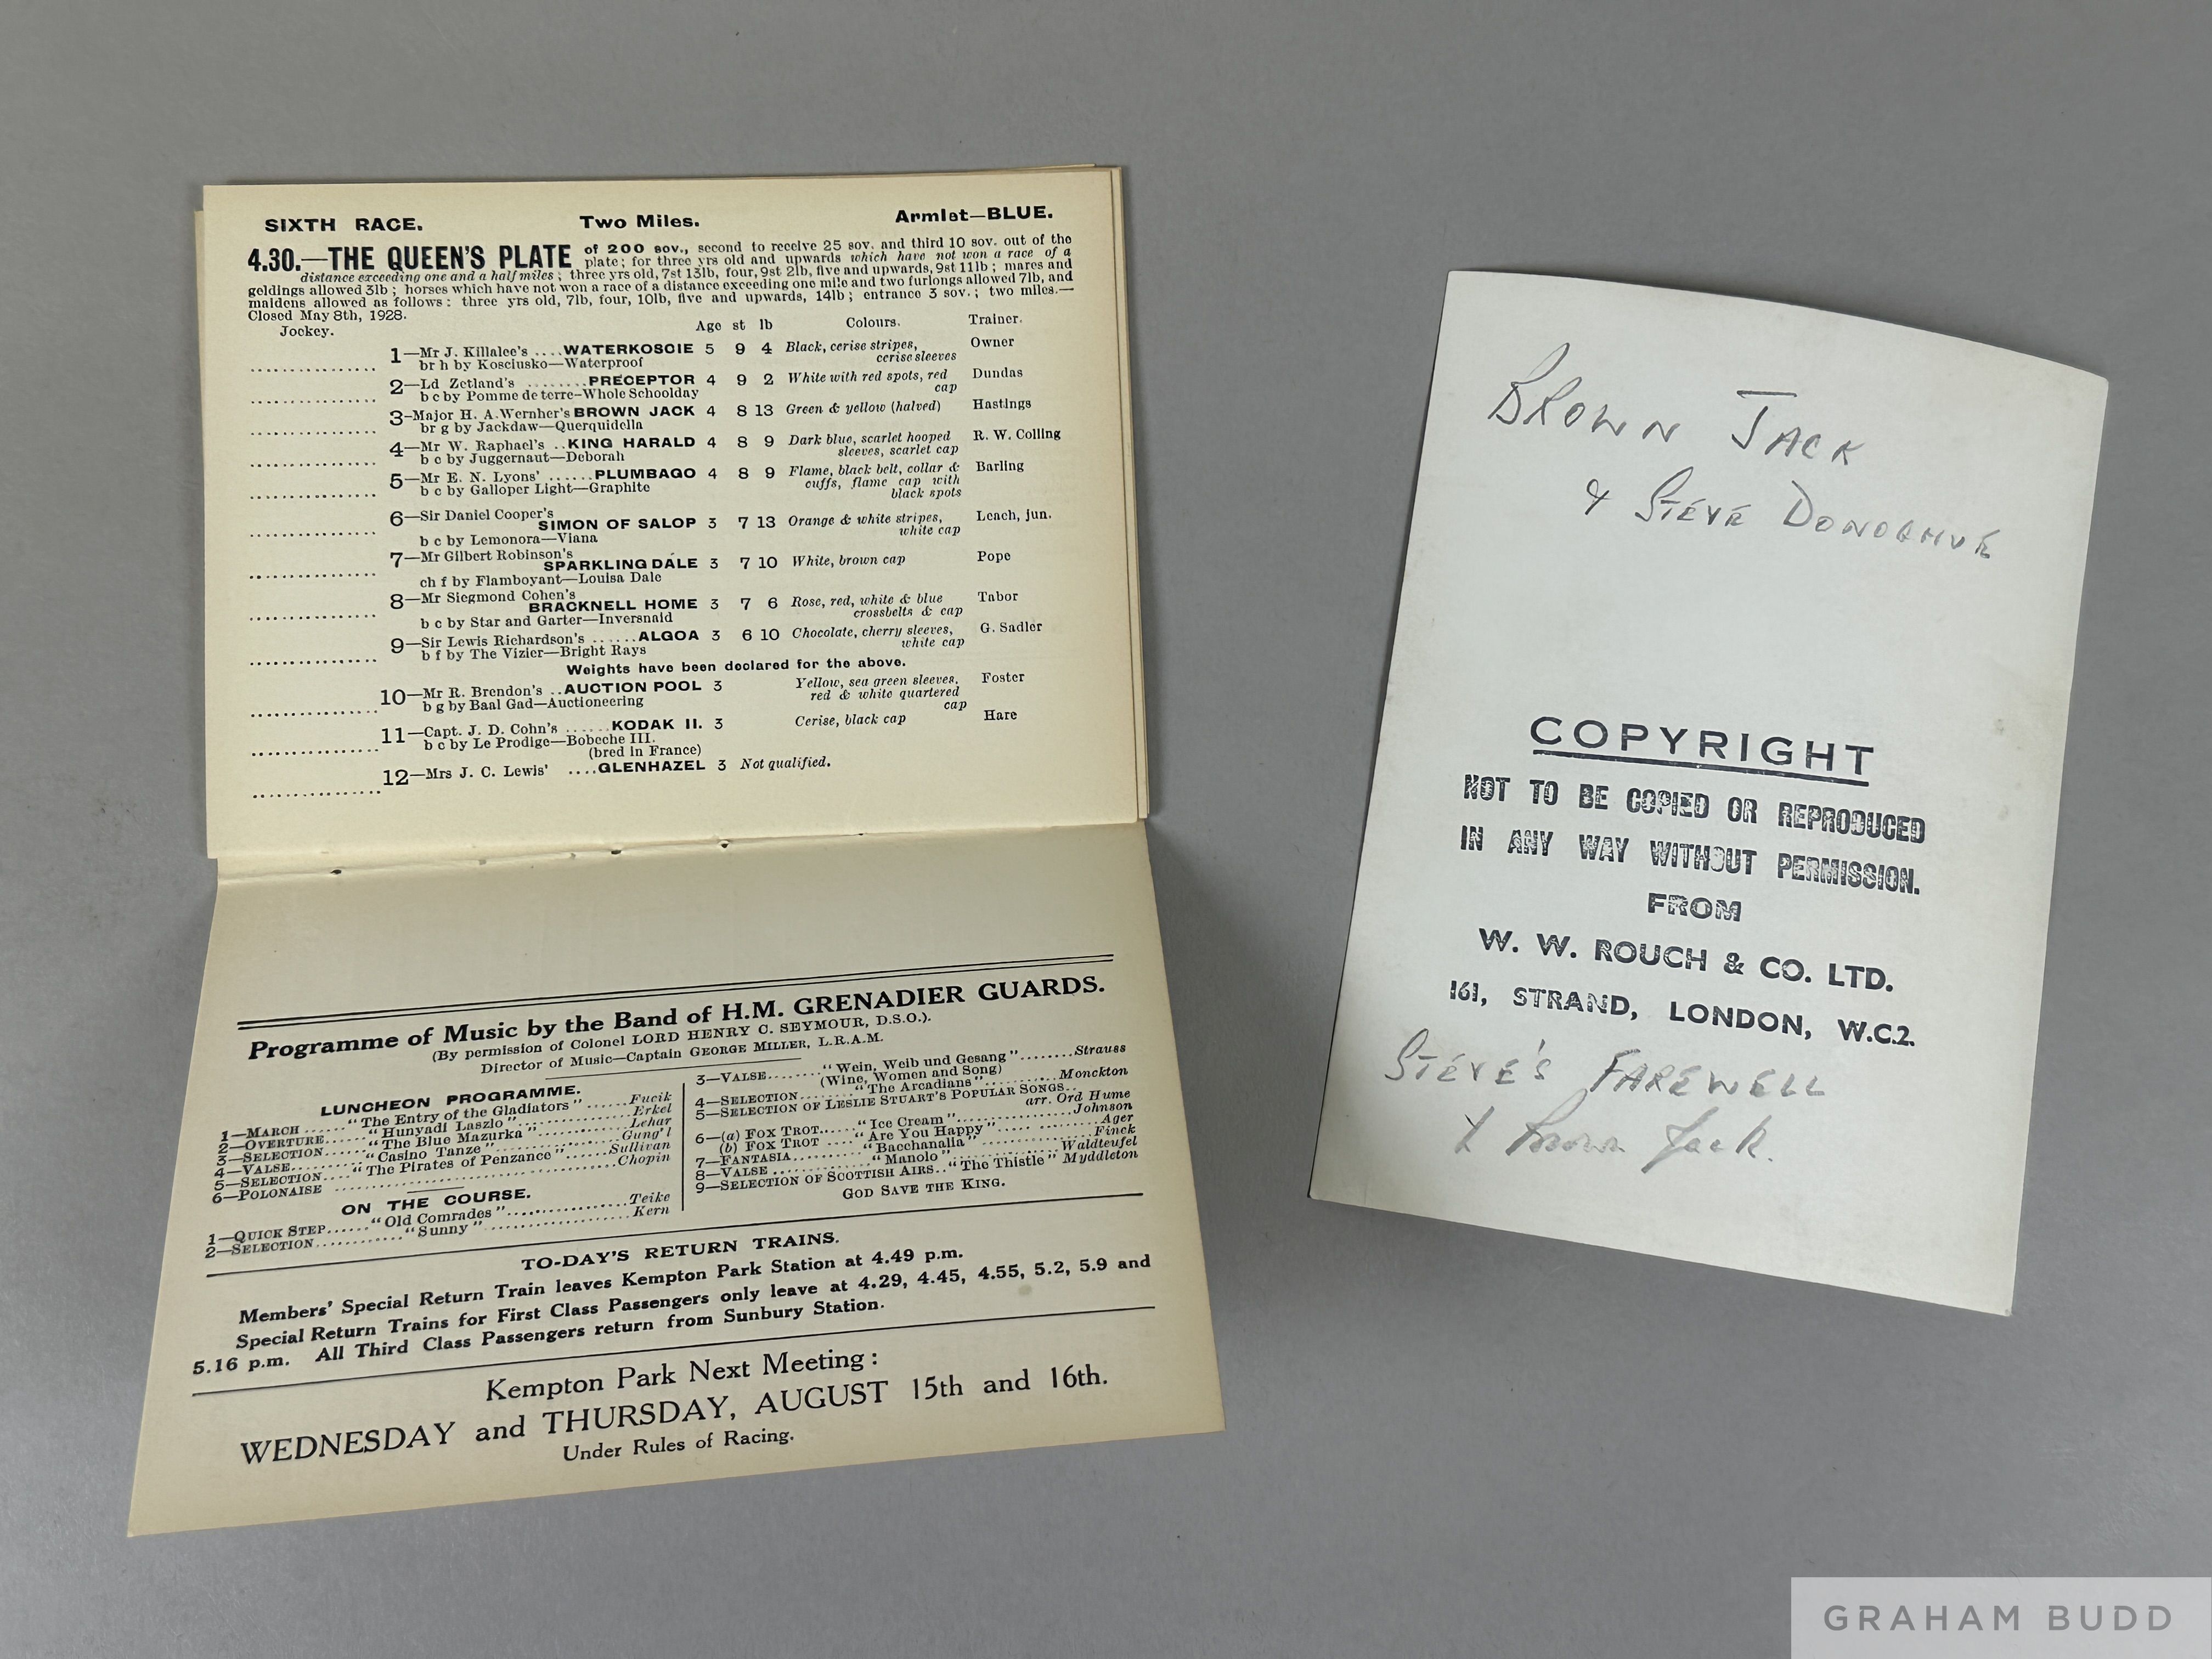 SIXTH RACE. Two Miles. Armlet—BLUE.
4.30.—THE QUEEN'S PLATE of 200 sov., second to receive 25 sov. and third 10 sov. out of the
plate; for three yrs old and upwards which have not won a race of a
distance exceeding one and a half miles; three yrs old, 7st 13lb, four, 9st 2lb, five and upwards, 9st 11lb; mares and
geldings allowed 3lb; horses which have not won a race of a distance exceeding one mile and two furlongs allowed 7lb, and
maidens allowed as follows: three yrs old, 7lb, four, 10lb, five and upwards, 14lb; entrance 3 sov.; two miles.—
Closed May 8th, 1928.
Jockey. Age st lb Colours. Trainer.
1—Mr J. Killalee's ....WATERKOSCIE 5 9 4 Black, cerise stripes, Owner
br h by Kosciusko—Waterproof cerise sleeves
2—Ld Zetland's ........PRECEPTOR 4 9 2 White with red spots, red Dundas
b c by Pomme de terre—Whole Schoolday cap
3—Major H. A. Wernher's BROWN JACK 4 8 13 Green & yellow (halved) Hastings
br g by Jackdaw—Querquidella
4—Mr W. Raphael's ..KING HARALD 4 8 9 Dark blue, scarlet hooped R. W. Colling
b c by Juggernaut—Deborah sleeves, scarlet cap
5—Mr E. N. Lyons' ......PLUMBAGO 4 8 9 Flame, black belt, collar & Barling
b c by Galloper Light—Graphite cuffs, flame cap with
black spots
6—Sir Daniel Cooper's
SIMON OF SALOP 3 7 13 Orange & white stripes, Leach, jun.
b c by Lemonora—Viana white cap
7—Mr Gilbert Robinson's
SPARKLING DALE 3 7 10 White, brown cap Pope
ch f by Flamboyant—Louisa Dale
8—Mr Siegmond Cohen's
BRACKNELL HOME 3 7 6 Rose, red, white & blue Tabor
b c by Star and Garter—Inversnaid crossbelts & cap
9—Sir Lewis Richardson's ......ALGOA 3 6 10 Chocolate, cherry sleeves, G. Sadler
b f by The Vizier—Bright Rays white cap
Weights have been declared for the above.
10—Mr R. Brendon's ..AUCTION POOL 3 Yellow, sea green sleeves, Foster
b g by Baal Gad—Auctioneering red & white quartered
cap
11—Capt. J. D. Cohn's ......KODAK II. 3 Cerise, black cap Hare
b c by Le Prodige—Bobeche III.
(bred in France)
12—Mrs J. C. Lewis' ....GLENHAZEL 3 Not qualified.
Programme of Music by the Band of H.M. GRENADIER GUARDS.
(By permission of Colonel LORD HENRY C. SEYMOUR, D.S.O.).
Director of Music—Captain GEORGE MILLER, L.R.A.M.
LUNCHEON PROGRAMME.
1—MARCH ......"The Entry of the Gladiators"......Fucik
2—OVERTURE......"Hunyadi Laszlo"......Erkel
3—SELECTION......"The Blue Mazurka"......Lehar
4—VALSE......"Casino Tanze"......Gung'l
5—SELECTION...."The Pirates of Penzance"......Sullivan
6—POLONAISE ......Chopin
ON THE COURSE.
1—QUICK STEP......"Old Comrades"......Teike
2—SELECTION......"Sunny"......Kern
3—VALSE........"Wein, Weib und Gesang"........Strauss
(Wine, Women and Song)
4—SELECTION........"The Arcadians"........Monckton
5—SELECTION OF LESLIE STUART'S POPULAR SONGS..
arr. Ord Hume
6—(a) FOX TROT....."Ice Cream"......Johnson
(b) FOX TROT ...."Are You Happy"......Ager
7—FANTASIA......"Bacchanalia"......Finck
8—VALSE ......"Manolo"......Waldteufel
9—SELECTION OF SCOTTISH AIRS.."The Thistle" Myddleton
GOD SAVE THE KING.
TO-DAY'S RETURN TRAINS.
Members' Special Return Train leaves Kempton Park Station at 4.49 p.m.
Special Return Trains for First Class Passengers only leave at 4.29, 4.45, 4.55, 5.2, 5.9 and
5.16 p.m. All Third Class Passengers return from Sunbury Station.
Kempton Park Next Meeting:
WEDNESDAY and THURSDAY, AUGUST 15th and 16th.
Under Rules of Racing.
BROWN JACK
& STEVE DONOGHUE
COPYRIGHT
NOT TO BE COPIED OR REPRODUCED
IN ANY WAY WITHOUT PERMISSION.
FROM
W. W. ROUCH & CO. LTD.
161, STRAND, LONDON, W.C.2.
STEVE'S FAREWELL
& Brown Jack.
GRAHAM BUDD